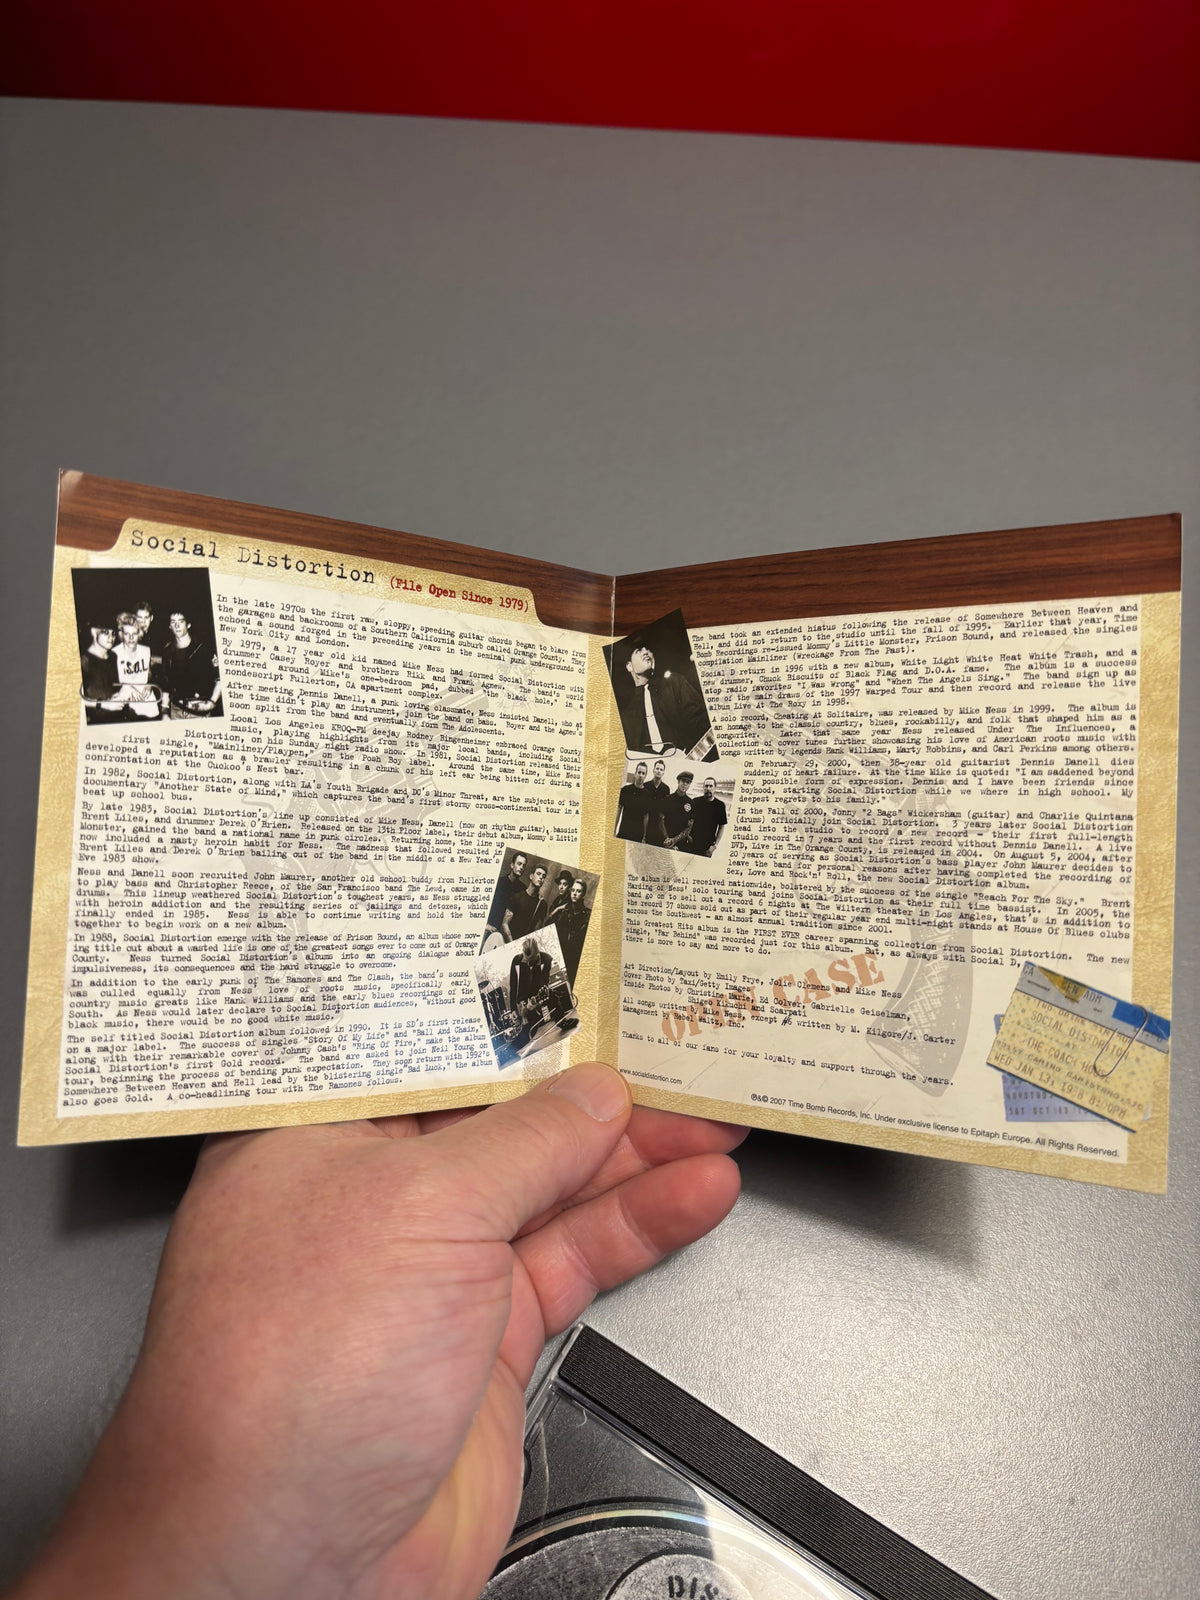 Social Distortion (File Open Since 1979)
In the late 1970s the first raw, sloppy, speeding guitar chords began to blare from
the garages and backrooms of a Southern California suburb called Orange County. They
echoed a sound forged in the preceding years in the seminal punk undergrounds of
New York City and London.
By 1979, a 17 year old kid named Mike Ness had formed Social Distortion with
drummer Casey Royer and brothers Rikk and Frank Agnew. The band's world
centered around Mike's one-bedroom pad, dubbed "the black hole," in a
nondescript Fullerton, CA apartment complex.
After meeting Dennis Danell, a punk loving classmate, Ness insisted Danell, who at
the time didn't play an instrument, join the band on bass. Royer and the Agnew's
soon split from the band and eventually form The Adolescents.
Local Los Angeles KROQ-FM deejay Rodney Bingenheimer embraced Orange County
music, playing highlights from its major local bands, including Social
Distortion, on his Sunday night radio show. In 1981, Social Distortion released their
first single, "Mainliner/Playpen," on the Posh Boy label. Around the same time, Mike Ness
developed a reputation as a brawler resulting in a chunk of his left ear being bitten off during a
confrontation at the Cuckoo's Nest bar.
In 1982, Social Distortion, along with LA's Youth Brigade and DC's Minor Threat, are the subjects of the
documentary "Another State of Mind," which captures the band's first stormy cross-continental tour in a
beat up school bus.
By late 1983, Social Distortion's line up consisted of Mike Ness, Danell (now on rhythm guitar), bassist
Brent Liles, and drummer Derek O'Brien. Released on the 13th Floor label, their debut album, Mommy's Little
Monster, gained the band a national name in punk circles. Returning home, the line up
now included a nasty heroin habit for Ness. The madness that followed resulted in
Brent Liles and Derek O'Brien bailing out of the band in the middle of a New Year's
Eve 1983 show.
Ness and Danell soon recruited John Maurer, another old school buddy from Fullerton
to play bass and Christopher Reece, of the San Francisco band The Lewd, came in on
drums. This lineup weathered Social Distortion's toughest years, as Ness struggled
with heroin addiction and the resulting series of jailings and detoxes, which
finally ended in 1985. Ness is able to continue writing and hold the band
together to begin work on a new album.
In 1988, Social Distortion emerge with the release of Prison Bound, an album whose mov-
ing title cut about a wasted life is one of the greatest songs ever to come out of Orange
County. Ness turned Social Distortion's albums into an ongoing dialogue about
impulsiveness, its consequences and the hard struggle to overcome.
In addition to the early punk of The Ramones and The Clash, the band's sound
was culled equally from Ness' love of roots music, specifically early
country music greats like Hank Williams and the early blues recordings of the
South. As Ness would later declare to Social Distortion audiences, "without good
black music, there would be no good white music."
The self titled Social Distortion album followed in 1990. It is SD's first release
on a major label. The success of singles "Story Of My Life" and "Ball And Chain,"
along with their remarkable cover of Johnny Cash's "Ring Of Fire," make the album
Social Distortion's first Gold record. The band are asked to join Neil Young on
tour, beginning the process of bending punk expectation. They soon return with 1992's
Somewhere Between Heaven and Hell lead by the blistering single "Bad Luck," the album
also goes Gold. A co-headlining tour with The Ramones follows.
The band took an extended hiatus following the release of Somewhere Between Heaven and
Hell, and did not return to the studio until the fall of 1995. Earlier that year, Time
Bomb Recordings re-issued Mommy's Little Monster, Prison Bound, and released the singles
compilation Mainliner (Wreckage From The Past).
Social D return in 1996 with a new album, White Light White Heat White Trash, and a
new drummer, Chuck Biscuits of Black Flag and D.O.A. fame. The album is a success
atop radio favorites "I Was Wrong" and "When The Angels Sing." The band sign up as
one of the main draws of the 1997 Warped Tour and then record and release the live
album Live At The Roxy in 1998.
A solo record, Cheating At Solitaire, was released by Mike Ness in 1999. The album is
an homage to the classic country, blues, rockabilly, and folk that shaped him as a
songwriter. Later that same year Ness released Under The Influences, a
collection of cover tunes further showcasing his love of American roots music with
songs written by legends Hank Williams, Marty Robbins, and Carl Perkins among others.
On February 29, 2000, then 38-year old guitarist Dennis Danell dies
suddenly of heart failure. At the time Mike is quoted: "I am saddened beyond
any possible form of expression. Dennis and I have been friends since
boyhood, starting Social Distortion while we where in high school. My
deepest regrets to his family."
In the Fall of 2000, Jonny "2 Bags" Wickersham (guitar) and Charlie Quintana
(drums) officially join Social Distortion. 3 years later Social Distortion
head into the studio to record a new record - their first full-length
studio record in 7 years and the first record without Dennis Danell. A live
DVD, Live in The Orange County, is released in 2004. On August 5, 2004, after
20 years of serving as Social Distortion's bass player John Maurer decides to
leave the band for personal reasons after having completed the recording of
Sex, Love and Rock'n' Roll, the new Social Distortion album.
The album is well received nationwide, bolstered by the success of the single "Reach For The Sky." Brent
Harding of Ness' solo touring band joins Social Distortion as their full time bassist. In 2005, the
band go on to sell out a record 6 nights at The Wiltern theater in Los Angles, that's in addition to
the record 37 shows sold out as part of their regular year end multi-night stands at House Of Blues clubs
across the Southwest - an almost annual tradition since 2001.
This Greatest Hits album is the FIRST EVER career spanning collection from Social Distortion. The new
single, "Far Behind" was recorded just for this album. But, as always with Social D,
there is more to say and more to do.
OPEN CASE
Art Direction/Layout by Emily Frye, Jolie Clemens and Mike Ness
Cover Photo by Taxi/Getty Images
Inside Photos by Christine Marie, Ed Colver, Gabrielle Geiselman,
Shige Kikuchi and Scarpati
All songs written by Mike Ness, except #6 written by M. Kilgore/J. Carter
Management by Rebel Waltz, Inc.
Thanks to all of our fans for your loyalty and support through the years.
www.socialdistortion.com
℗&© 2007 Time Bomb Records, Inc. Under exclusive license to Epitaph Europe. All Rights Reserved.
GEN ADM
SOCIAL DISTORTION
AT
"THE COACH HOUSE"
WED JAN 13, 1988 8:00PM
SAT OCT
S.O.L
DIS